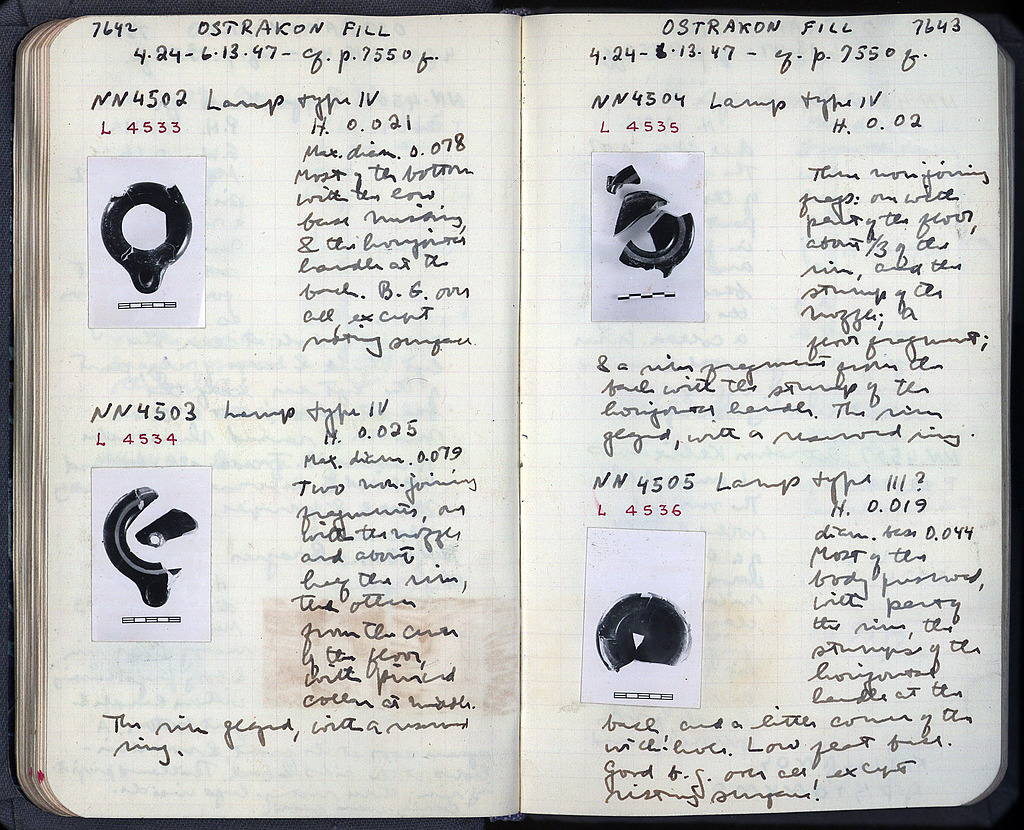 7642 OSTRAKON FILL
4.24-6.13.47 - cf. p. 7550 f.
NN4502 Lamp type IV
L 4533
H. 0.021
Max. diam. 0.078
Most of the bottom
with the low
base missing,
& the horizontal
handle at the
back. B.G. over
all, except
resting surface.
NN4503 Lamp type IV
L 4534
H. 0.025
Max. diam. 0.079
Two non-joining
fragments, one
with the nozzle
and about
half the rim,
the other
from the center
of the floor,
with pierced
collar at middle.
The rim glazed, with a reserved
ring.
OSTRAKON FILL 7643
4.24-6.13.47 - cf. p. 7550 f.
NN4504 Lamp type IV
L 4535
H. 0.02
Three non-joining
frags: one with
part of the floor,
about 1/3 of the
rim, and the
stump of the
nozzle; a
floor fragment;
& a rim fragment from the
back with the stump of the
horizontal handle. The rim
glazed, with a reserved ring.
NN 4505 Lamp type III?
L 4536
H. 0.019
diam. base 0.044
Most of the
body preserved,
with part of
the rim, the
stumps of the
horizontal
handle at the
back and a little corner of the
wick-hole. Low flat base.
Good b.g. over all, except
resting surface!